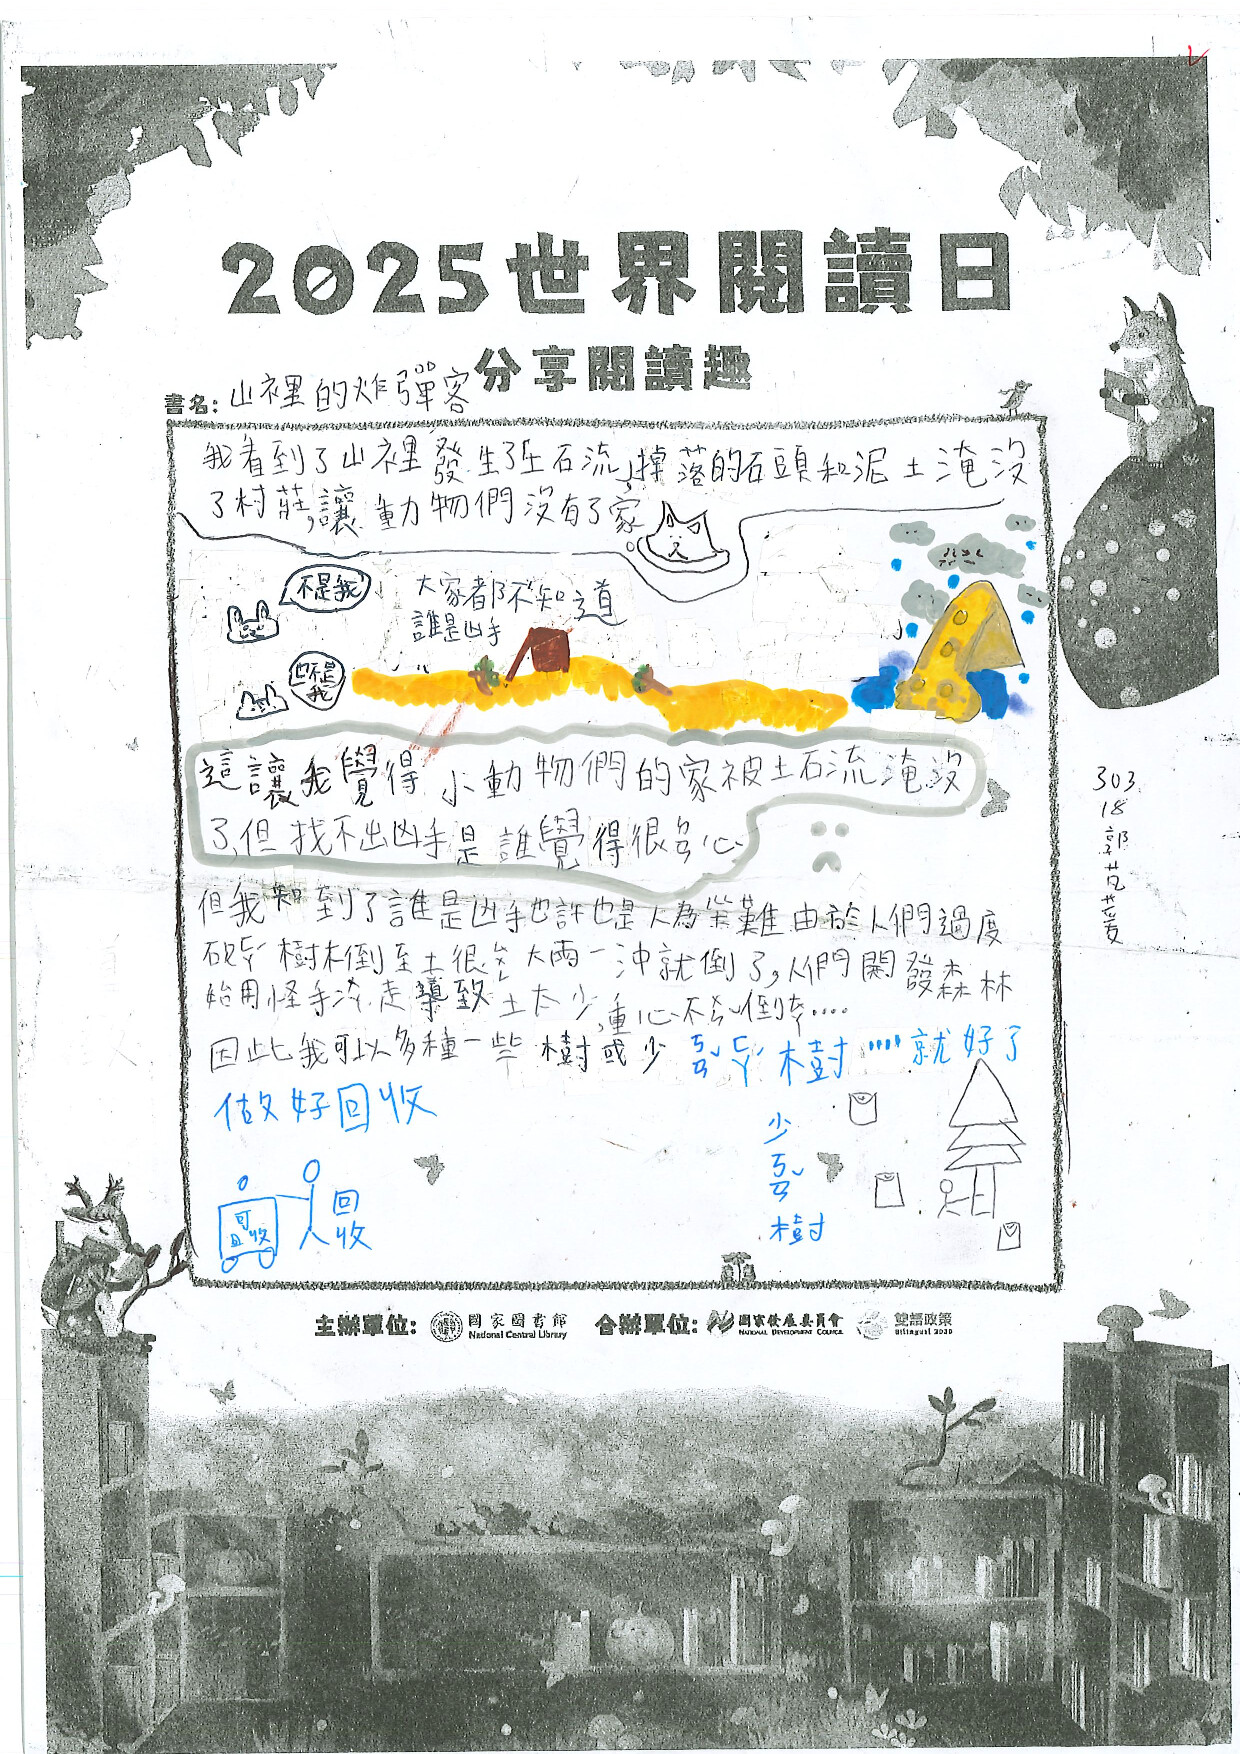 2025世界閱讀日
分享閱讀趣
書名: 山裡的炸彈客
我看到了山裡發生了土石流,掉落的石頭和泥土淹沒
了村莊,讓動物們沒有了家。
不是我
大家都不知道
誰是凶手
也不是
我
這讓我覺得小動物們的家被土石流淹沒
了,但找不出凶手是誰覺得很ㄕㄤ心
但我知到了誰是凶手也許也是人為災難由於人們過度
砍ㄈㄚˊ樹木倒至土很 大雨一沖就倒了,人們開發森林
始用怪手 走導致土太少,重心不 倒 ....
因此我可以多種一些樹或少ㄎㄢˇㄈㄚˊ樹....就好了
做好回收
少
ㄎㄢˇ
樹
可回收
回
收
303
18
郭
主辦單位: 國家圖書館
National Central Library
合辦單位: 國家發展委員會
NATIONAL DEVELOPMENT COUNCIL
雙語政策
Bilingual 2030